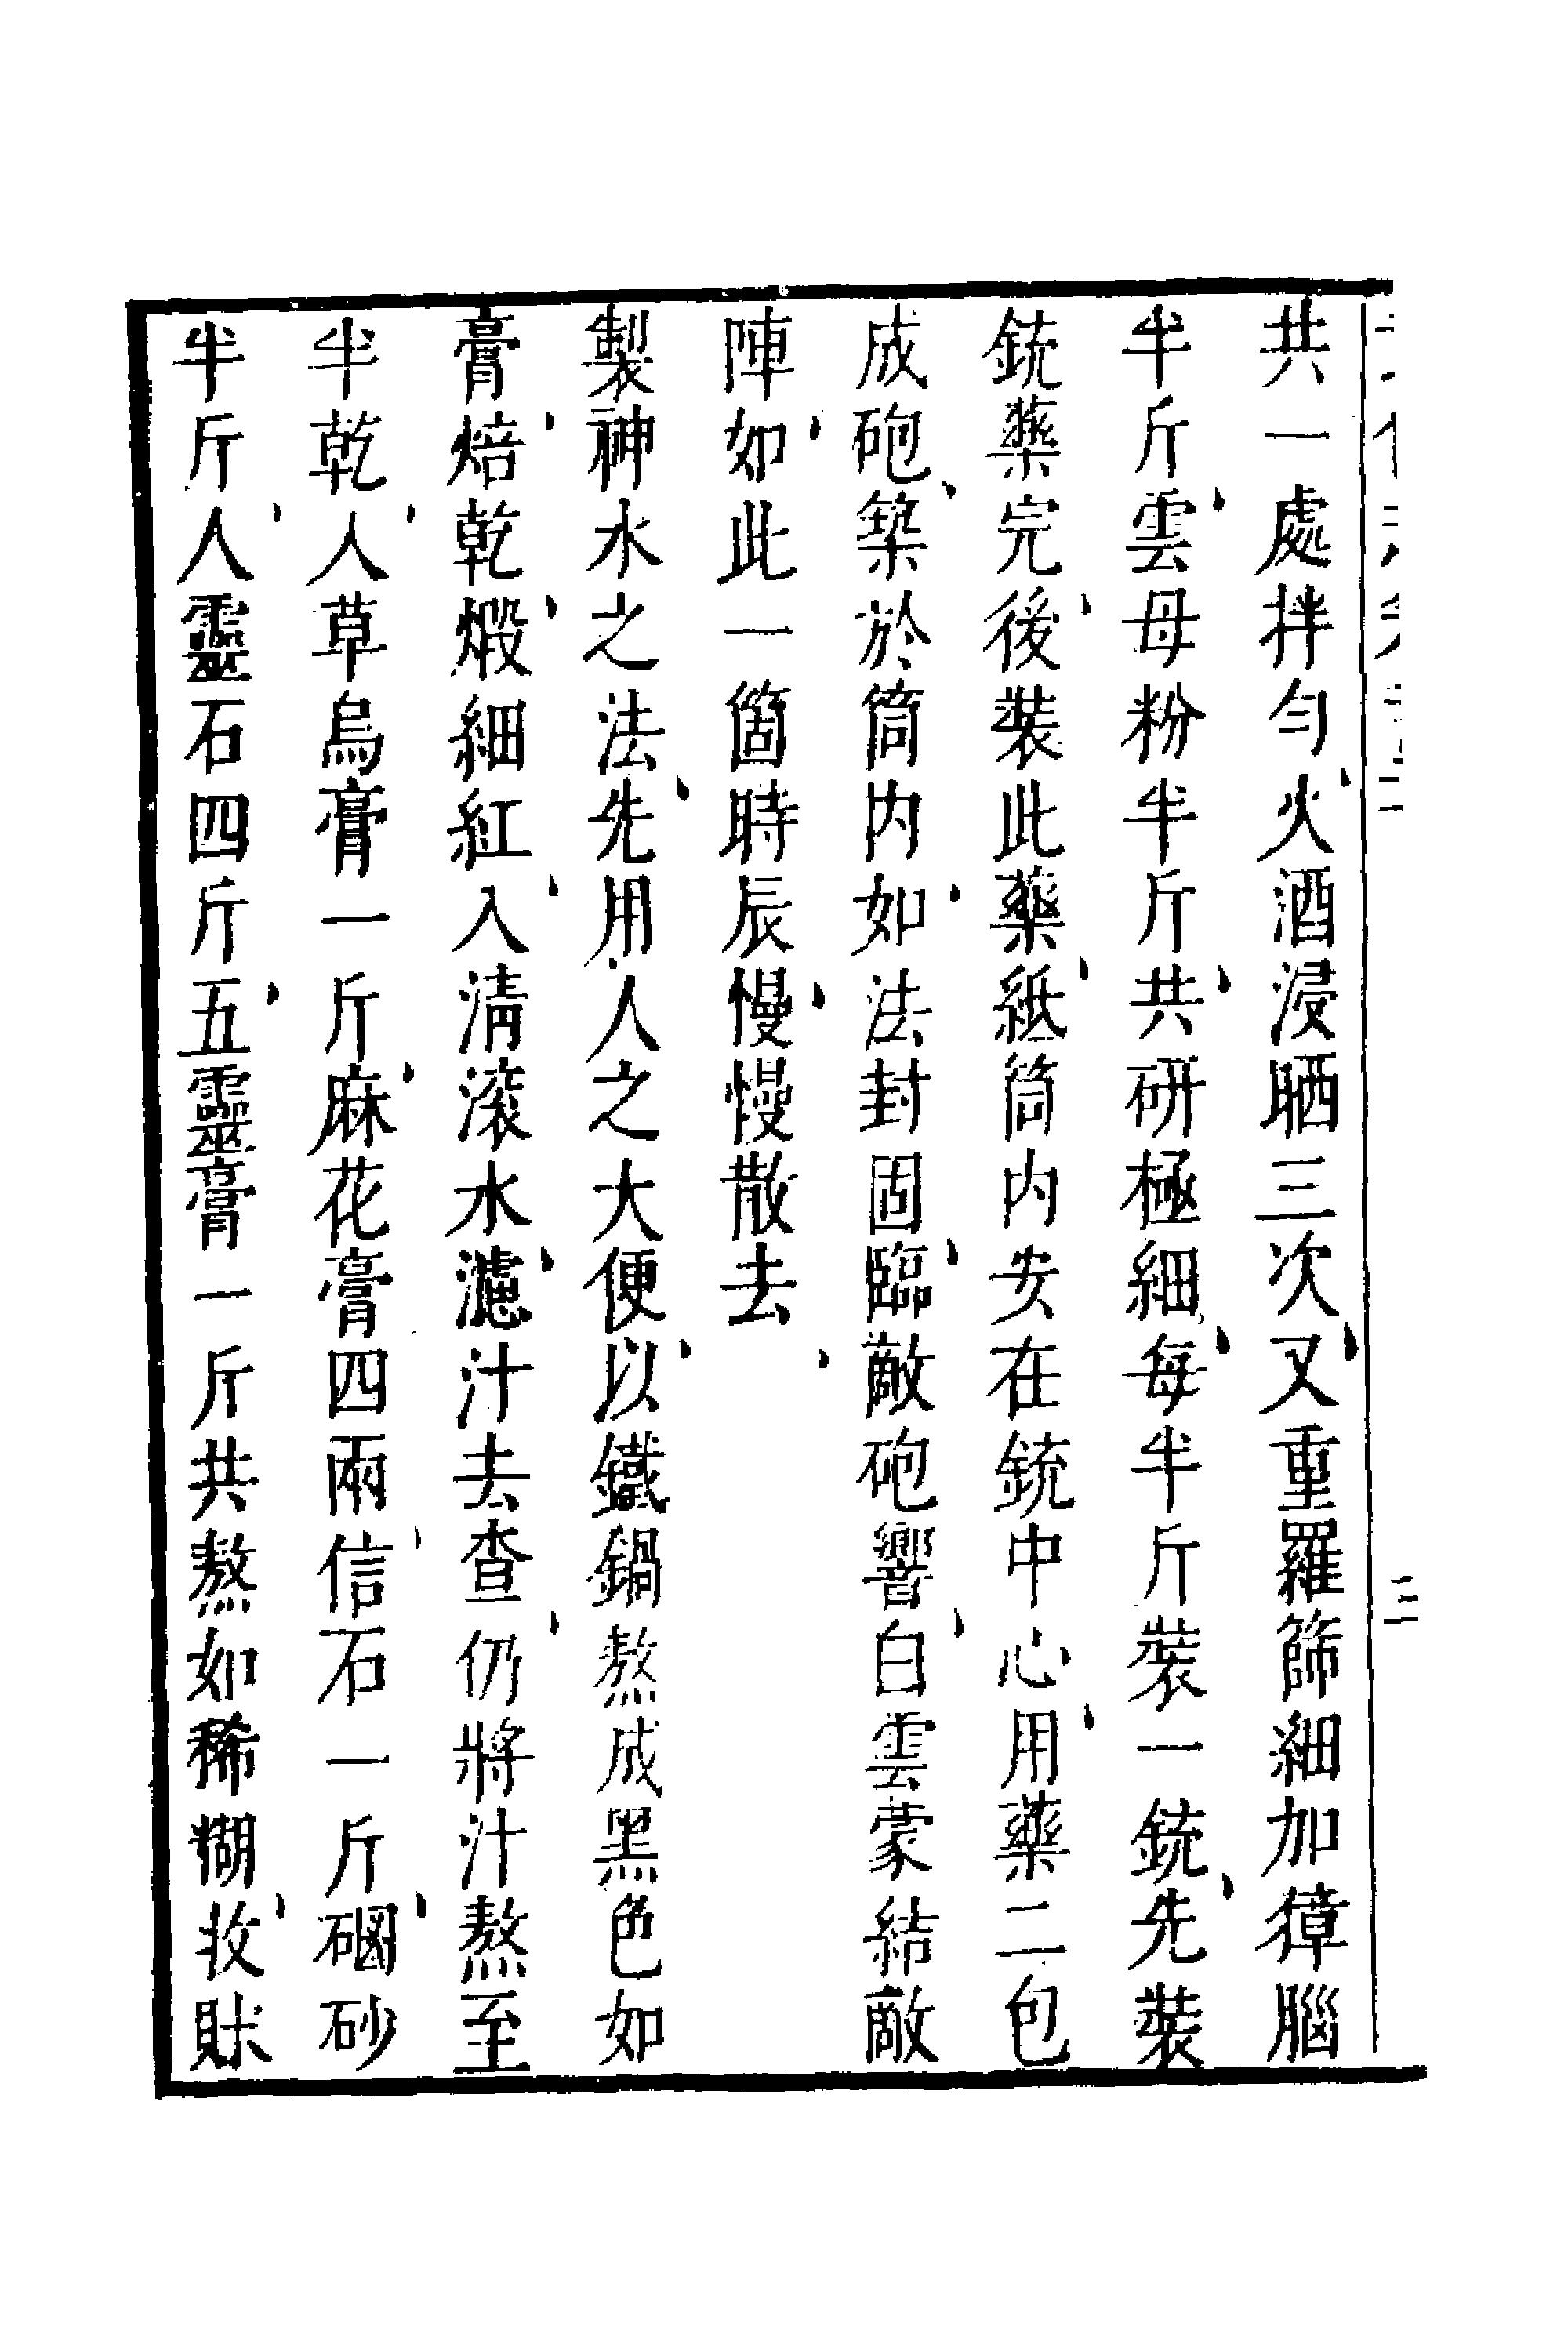 共一處拌勻火酒浸晒三次又重羅篩細加獐腦
半斤雲母粉半斤共研極細每半斤裝一銃先裝
銃藥完後裝此藥紙筒内安在銃中心用藥二包
成砲築於筒内如法封固臨敵砲響白雲蒙結敵
陣如此一箇時辰慢慢散去
製神水之法先用人之大便以鐵鍋熬成黑色如
膏焙乾煅細紅入清滚水濾汁去查仍將汁熬至
半乾人草烏膏一斤麻花膏四兩信石一斤碙砂
半斤人靈石四斤五靈膏一斤共熬如稀糊收貯
二